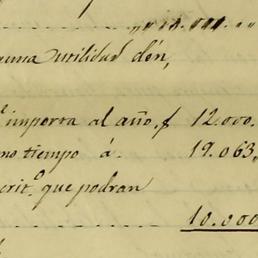 guna utilidad dén,
importa al año. $ 12.000.
mo tiempo á. 19.063,
crit.º que podran
10.000